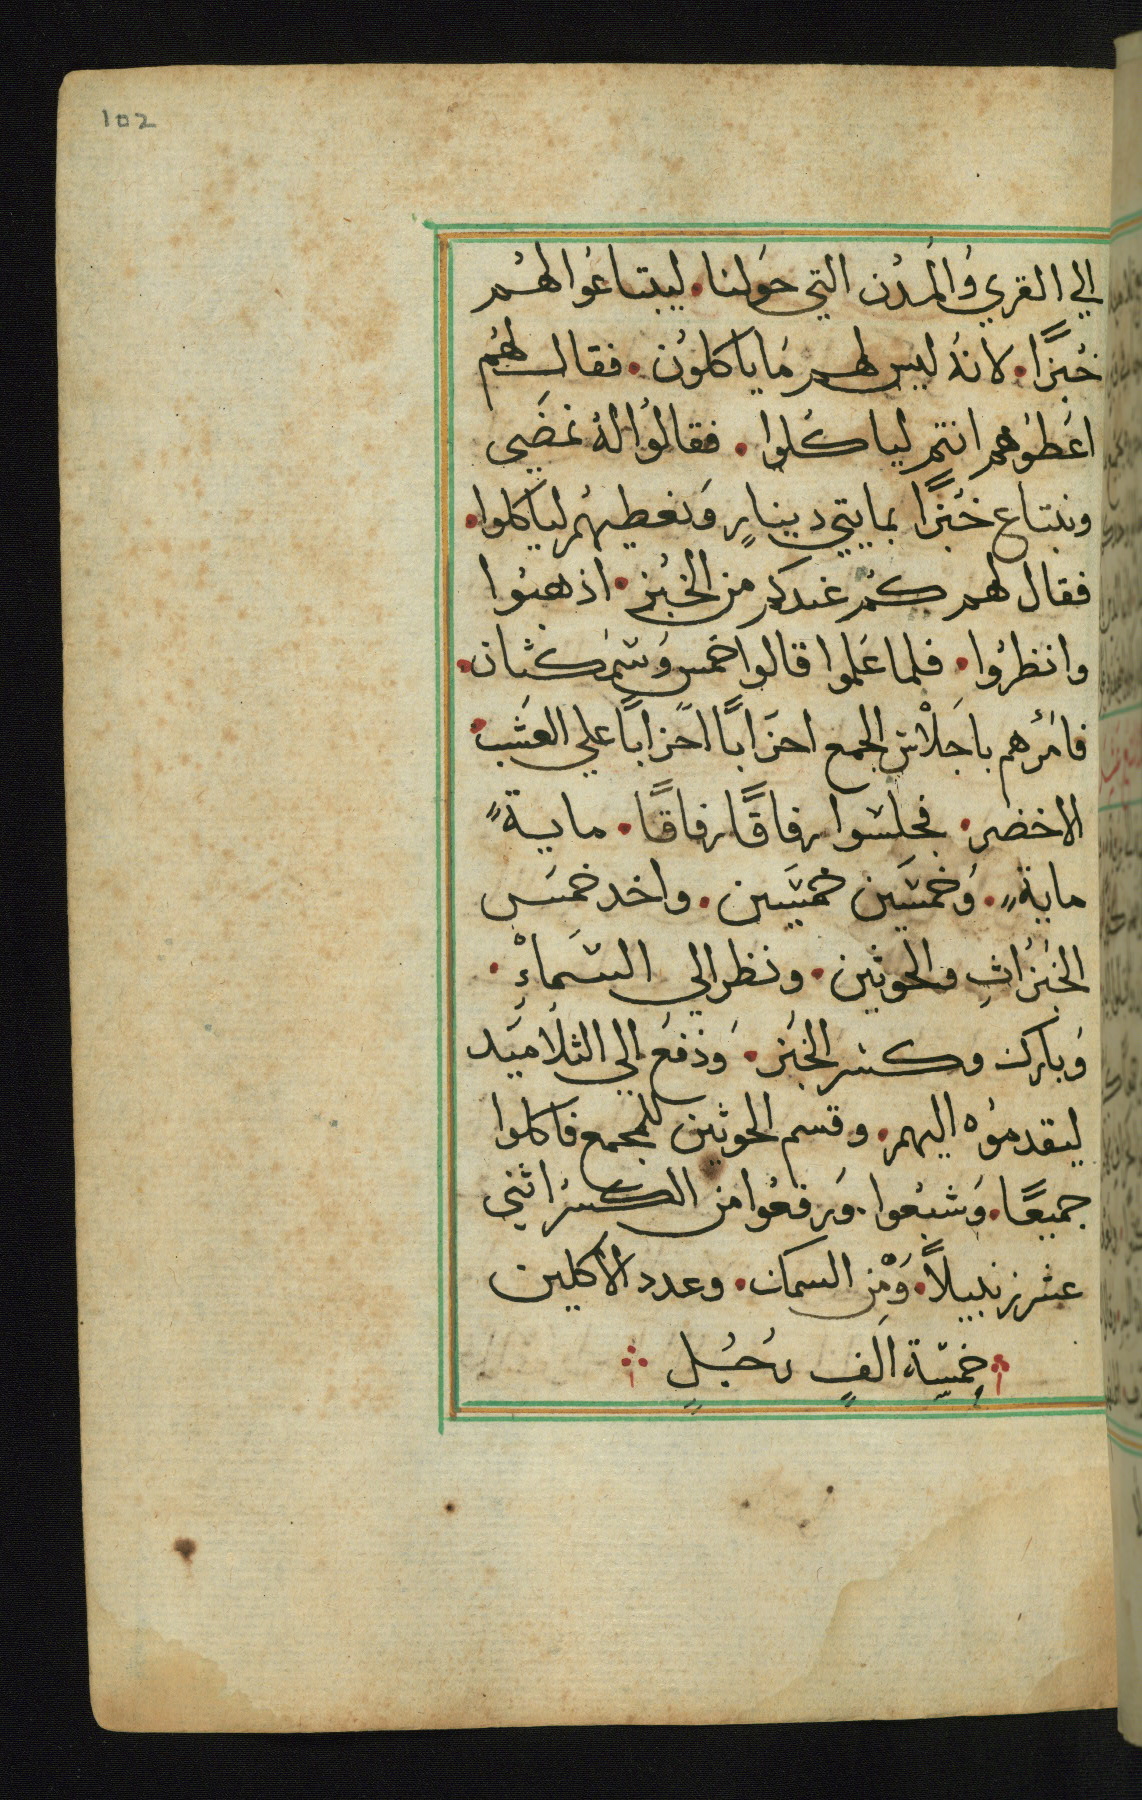 102
الي القري وَالمُدُن التي حَولنا. ليبتاعُوا لهُم
خُبزًا. لانهُ ليس لهم مَا ياكلوُن. فقال لهُم
اعَطوُهم انتم لياكُلوا. فقالوُا لهُ نمضَي
ونبتاع خُبزًا بمايتي دينارٍ وَنعطيهُم لياكلوا.
فقال لهم كمُ عندكم من الخُبز. اذهبُوا
وانظرُوا. فلما عَلموا قالوا خمس وَسَمكثان.
فامَرُهم باجَلاْس الجمع احزَابًا احَزابًا علي العَشب
الاخضر. فجلسَوا رفاقًا رفاقًا. مايةً
مايةً. وَخمسَين خمسَين. واخد خمسَ
الخبُزاثِ والحوثين. ونظر الي السَماءْ.
وَبارك وكسر الخبَز. وَدَفعَ الي الثلاَميَد
ليقدموُه اليهم. وقسم الحوثين للجمع فاكلوا
جميعًا. وَشبعُوا. وَرفعُوا من الكسرُ اثني
عشر زنبيلاً. وَمْن السمك. وعدد الاكلين
خمسِة الفٍ رَجُلٍ